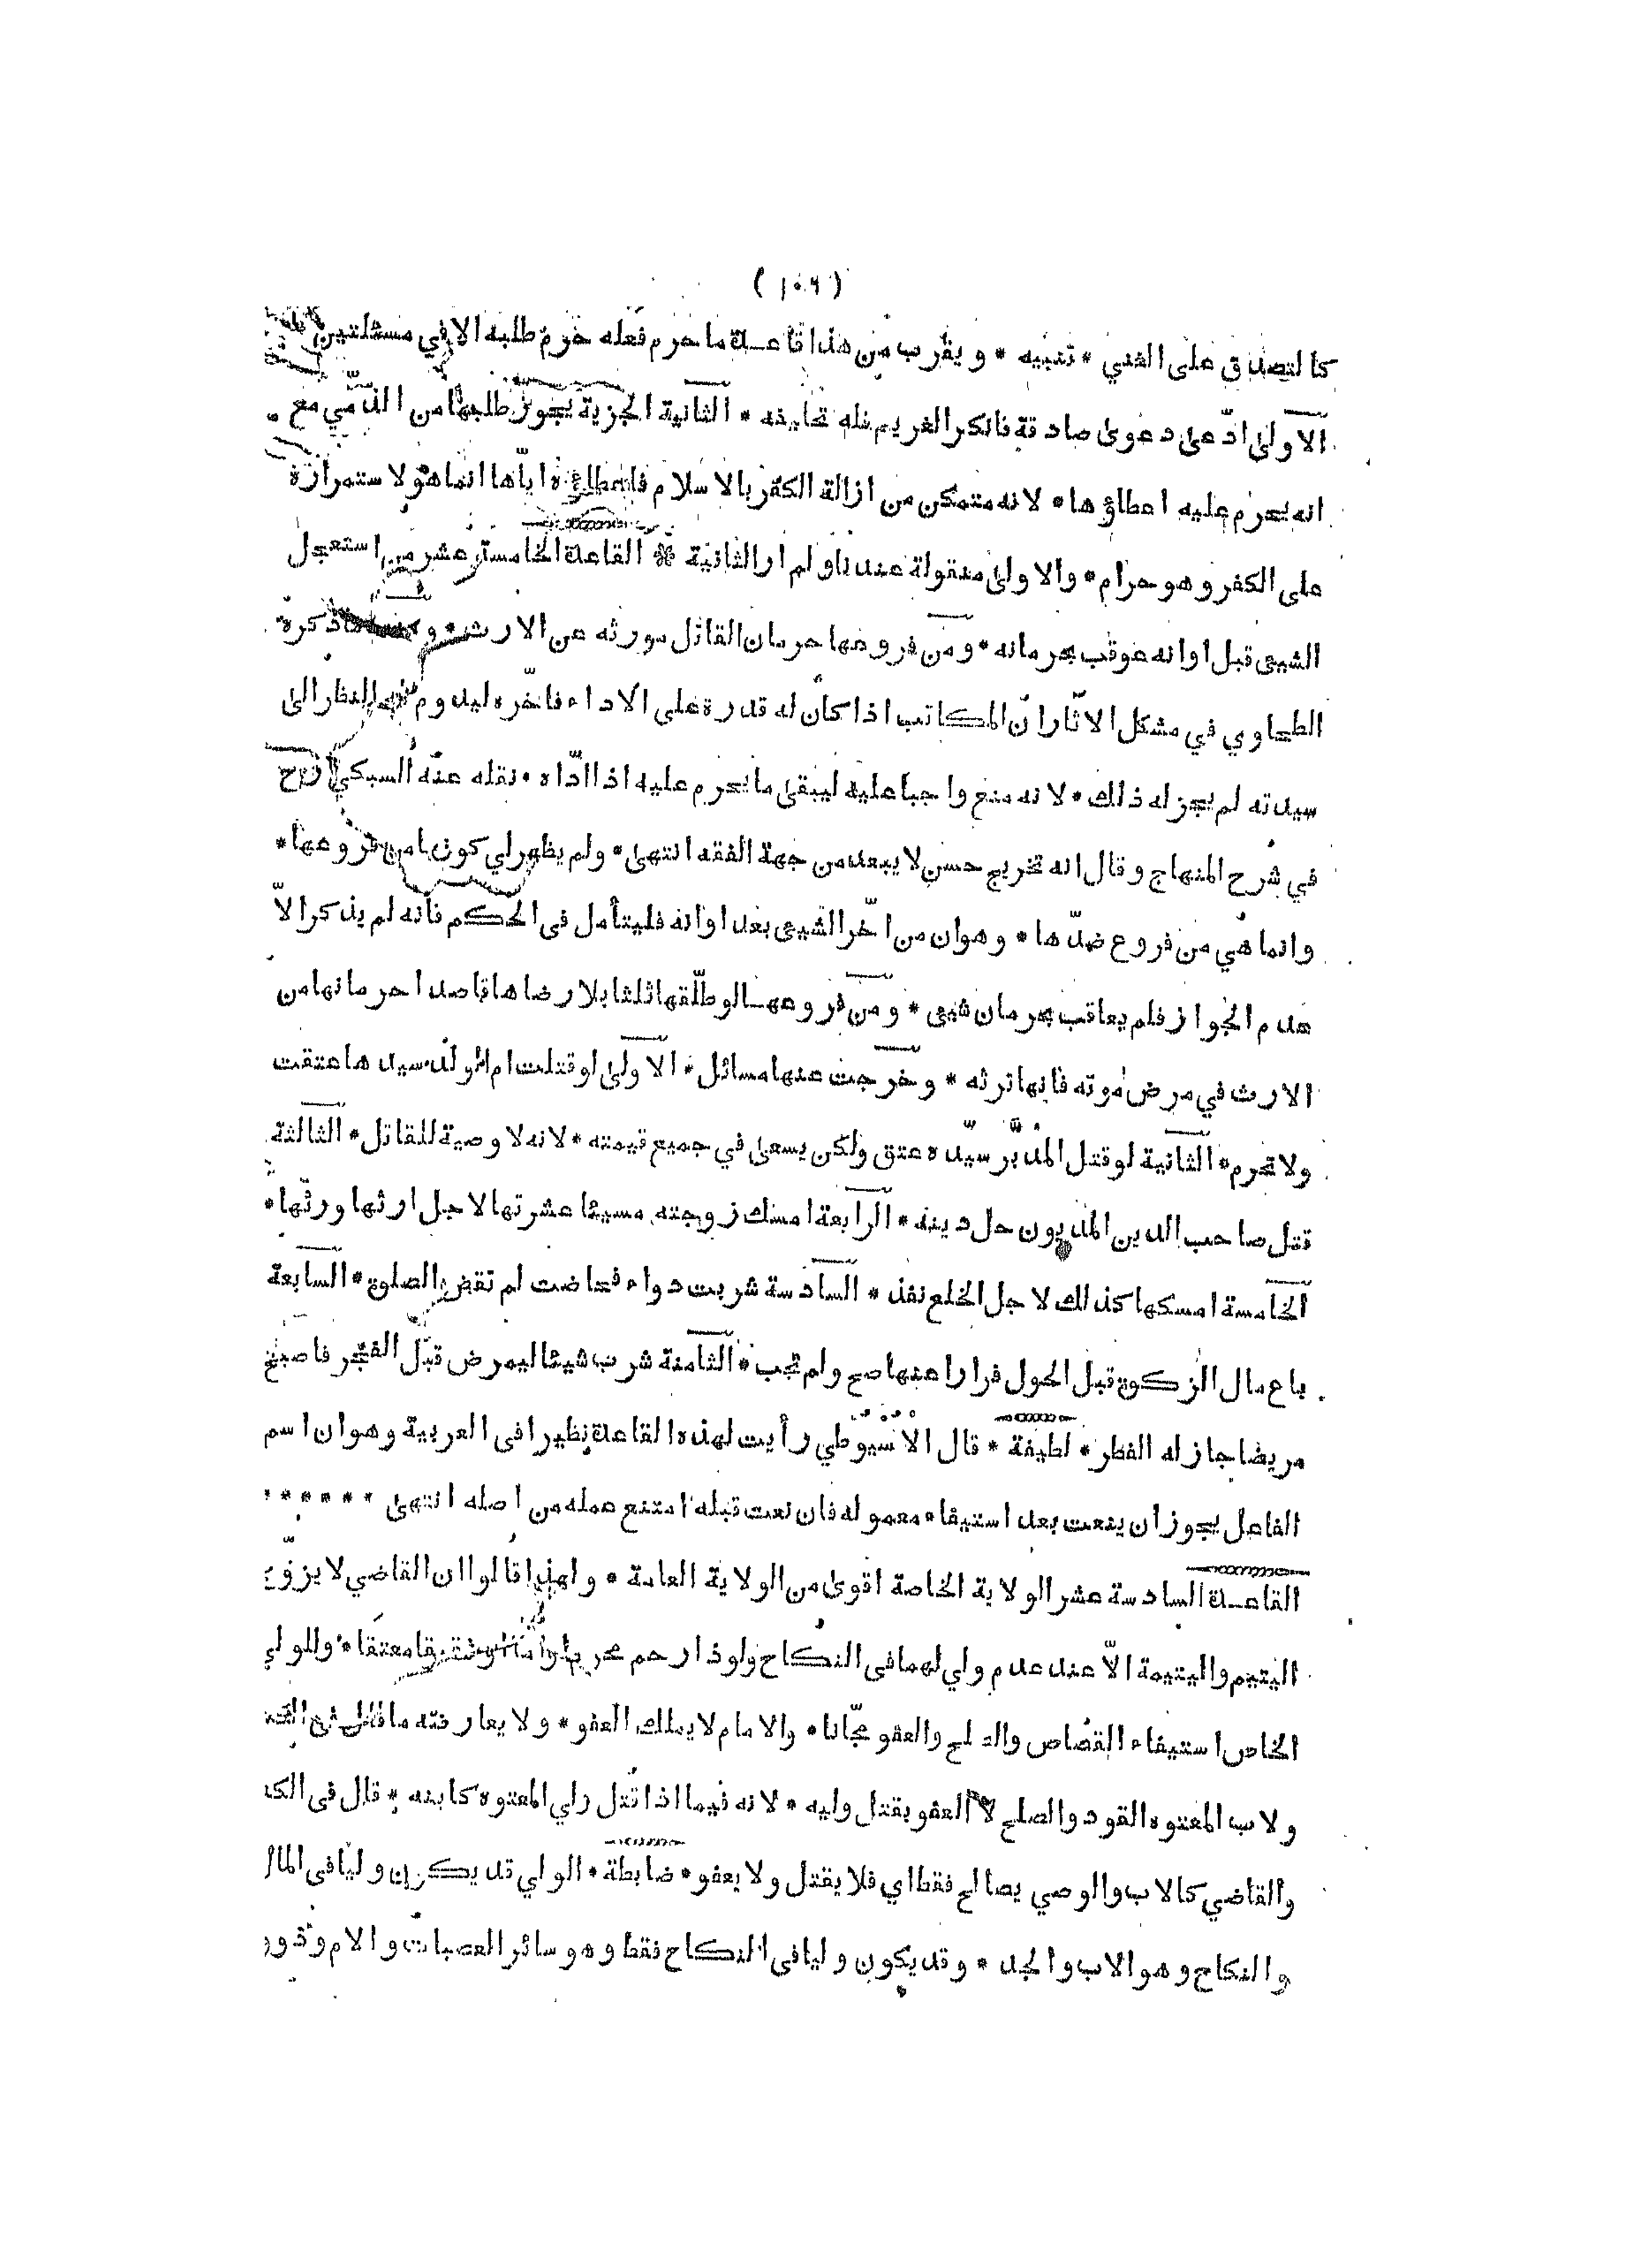 ( ١٠٦ )
كالتصدق على الغني * تنبيه * ويقرب من هذا قاعدة ما حرم فعله حرم طلبه الا في مسئلتين
الاولى ادّعى دعوى صادقة فانكر الغريم فله تحليفه * الثانية الجزية يجوز طلبها من الذّمّي مع
انه يحرم عليه اعطاؤها * لانه متمكن من ازالة الكفر بالاسلام فاعطاؤه اياّها انما هو لاستمراره
على الكفر وهو حرام * والاولى منقولة عندنا ولم ار الثانية * القاعدة الخامسة عشر من استعجل
الشيء قبل اوانه عوقب بحرمانه * ومن فروعها حرمان القاتل مورثه عن الارث * و ماذكره
الطحاوي في مشكل الآثار انّ المكاتب اذا كان له قدرة على الاداء فاخّره ليدوم له النظر الى
سيدته لم يجز له ذلك * لانه منع واجبا عليه ليبقى ما يحرم عليه اذا ادّاه * نقله عنه السبكي
في شرح المنهاج وقال انه تخريج حسن لا يبعد من جهة الفقه انتهى * ولم يظهر لي كونها من فروعها *
وانما هي من فروع ضدّها * وهو ان من اخّر الشيء بعد اوانه فليتأمل فى الحكم فانه لم يذكر الاّ
عدم الجواز فلم يعاقب بحرمان شيء * ومن فروعها لو طلّقها ثلثا بلا رضاها قاصدا حرمانها من
الارث في مرض موته فانها ترثه * وخرجت عنها مسائل * الاولى لو قتلت ام الولد سيدها عتقت
ولا تحرم * الثانية لو قتل المدبّر سيّده عتق ولكن يسعى في جميع قيمته * لانه لا وصية للقاتل * الثالثة
قتل صاحب الدين المديون حل دينه * الرابعة امسك زوجته مسيئا عشرتها لاجل ارثها ورثها *
الخامسة امسكها كذلك لاجل الخلع نفذ * السادسة شربت دواء فحاضت لم تقض الصلوة * السابعة
باع مال الزكوة قبل الحول فرارا عنها صح ولم تجب * الثامنة شرب شيئا ليمرض قبل الفجر فاصبح
مريضا جاز له الفطر * لطيفة * قال الاُسْيُوُطي رأيت لهذه القاعدة نظيرا فى العربية وهو ان اسم
الفاعل يجوز ان ينعت بعد استيفاء معموله فان نعت قبله امتنع عمله من اصله انتهى * * * * * *
القاعدة السادسة عشر الولاية الخاصة اقوى من الولاية العامة * ولهذا قالوا ان القاضي لا يزوّج
اليتيم واليتيمة الاّ عند عدم ولي لهما فى النكاح ولو ذا رحم محرم او معتقا * وللولي
الخاص استيفاء القصاص والصلح والعفو مجّانا * والامام لا يملك العفو * ولا يعارضه ما
ولاب المعتوه القود والصلح لا العفو بقتل وليه * لانه فيما اذا قتل ولي المعتوه كابنه * قال فى الكنز
والقاضي كالاب والوصي يصالح فقط اي فلا يقتل ولا يعفو * ضابطة * الولي قد يكون وليا فى المال
والنكاح وهو الاب والجد * وقد يكون وليا فى النكاح فقط وهو سائر العصبات والام وذوو